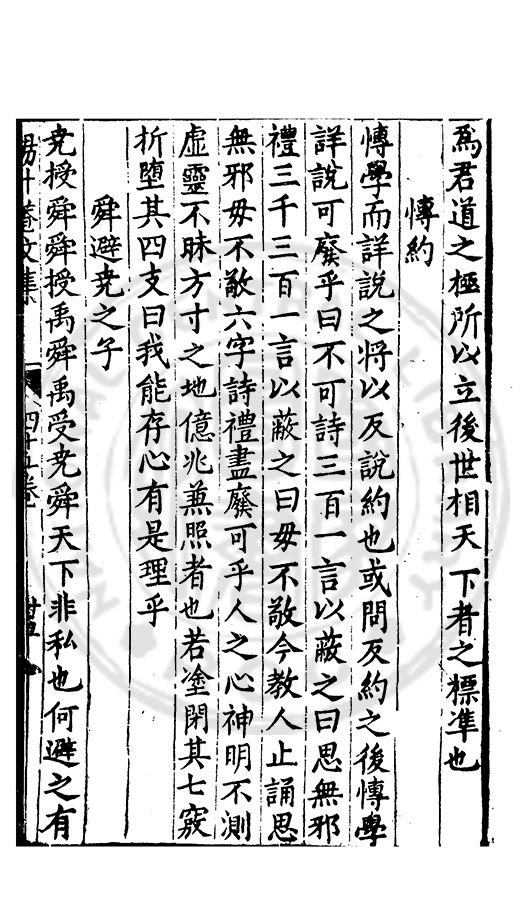 爲君道之極所以立後世相天下者之標準也
博約
博學而詳說之將以反說約也或問反約之後博學
詳說可廢乎曰不可詩三百一言以蔽之曰思無邪
禮三千三百一言以蔽之曰毋不敬今教人止誦思
無邪毋不敬六字詩禮盡廢可乎人之心神明不測
虛靈不昧方寸之地億兆兼照者也若塗閉其七竅
折墮其四支曰我能存心有是理乎
舜避堯之子
堯授舜舜授禹舜禹受堯舜天下非私也何避之有
楊升菴文集 四十五卷